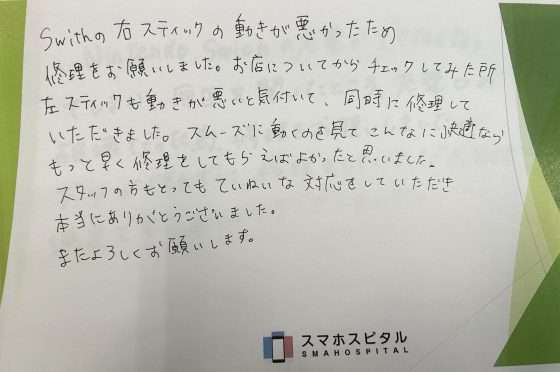 Swithの右スティックの動きが悪かったため
修理をお願いしました。お店についてからチェックしてみた所
左スティックも動きが悪いと気付いて、同時に修理して
いただきました。スムーズに動くのを見てこんなに快適なら
もっと早く修理をしてもらえばよかったと思いました。
スタッフの方もとってもていねいな対応をしていただき
本当にありがとうございました。
またよろしくお願いします。
スマホスピタル
SMAHOSPITAL